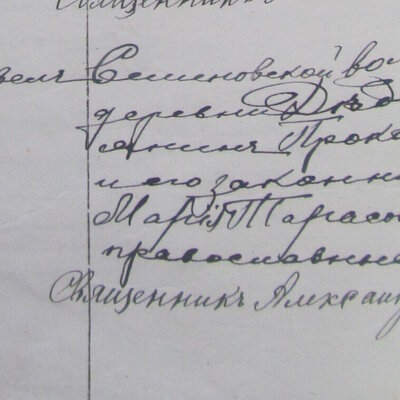 Священникъ
Семеновской вол
деревни Дѣд
янинъ Прок
и его законн
Марія Тарасо
православны
Священникъ Алексан